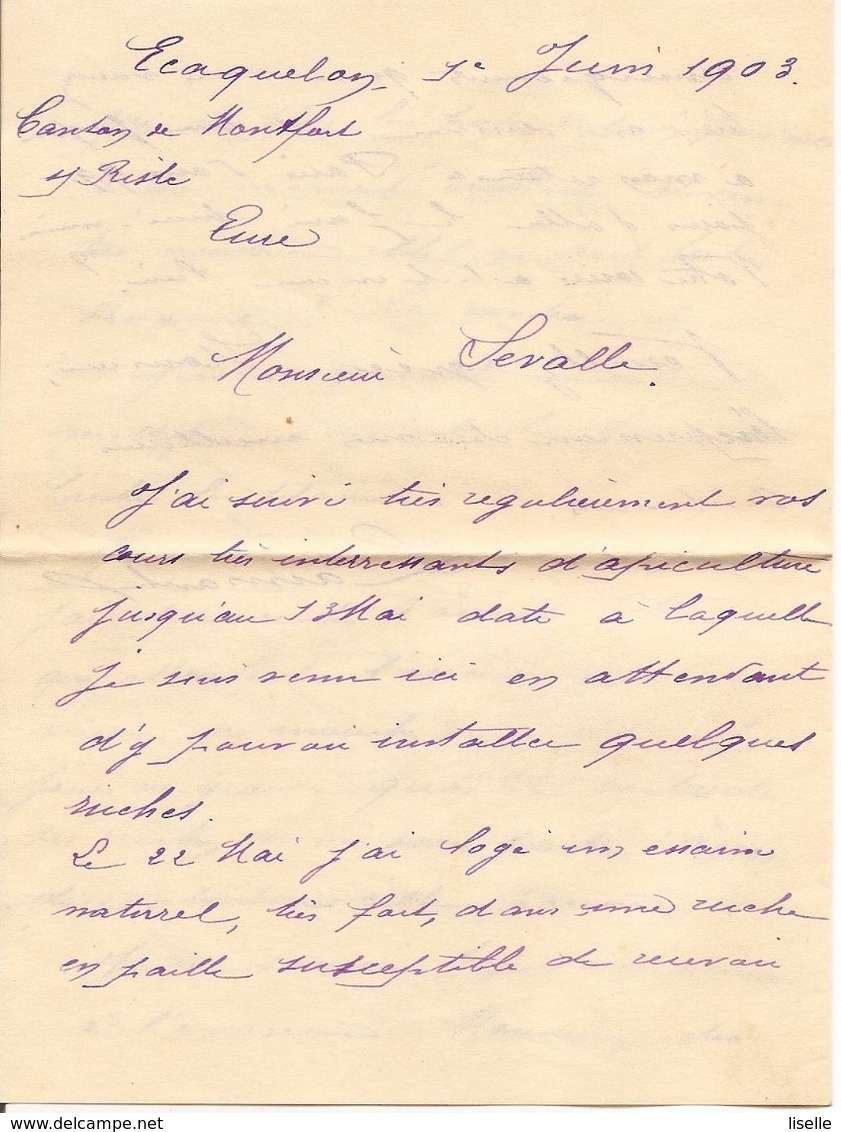 Ecaquelon 1e Juin 1903.
Canton de Montfort
s/ Risle
Eure
Monsieur Sevalle.
J'ai suivi très regulièrement vos
cours très interressants d'apiculture
jusqu'au 13 Mai date à laquelle
je suis venu ici en attendant
d'y pouvoir installer quelques
ruches.
Le 22 Mai j'ai logé un essaim
naturel, très fort, dans une ruche
en paille susceptible de recevoir
liselle